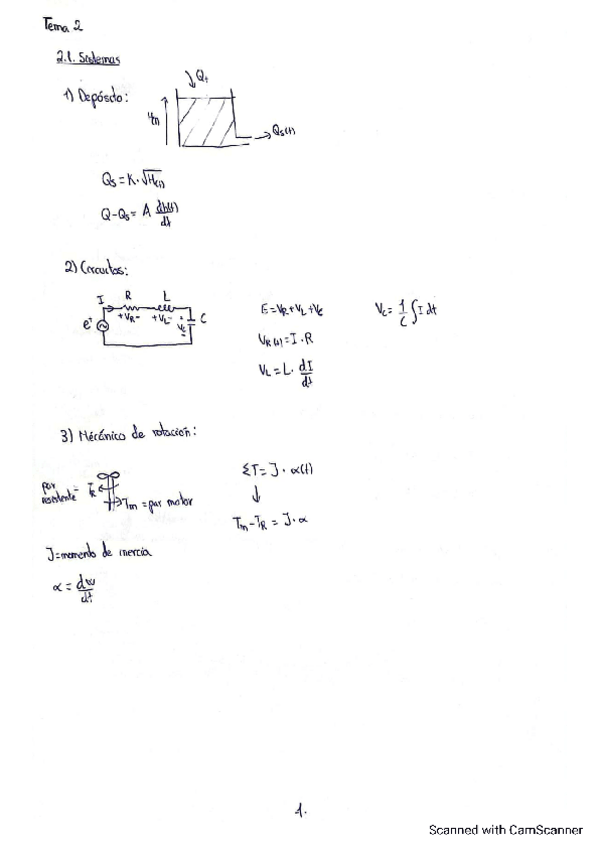 Tema 2
2.1. Sistemas
1) Depósito:
H(t)
Qs(t)
Qs = K · √H(t)
Q - Qs = A dh(t)/dt
2) Circuitos:
I R L
+VR- +VL- C
E = VR + VL + Vc
Vc = 1/C ∫ I dt
VR(t) = I · R
VL = L · dI/dt
3) Mecánico de rotación:
ΣT = J · α(t)
↓
par resistente = TR
Tm = par motor
Tm - TR = J · α
J = momento de inercia
α = dw/dt
1.
Scanned with CamScanner